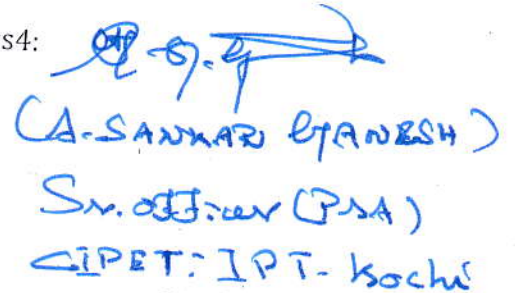 s4:
(A. SANKAR GANESH)
Sr. Officer (P&A)
CIPET: IPT - Kochi